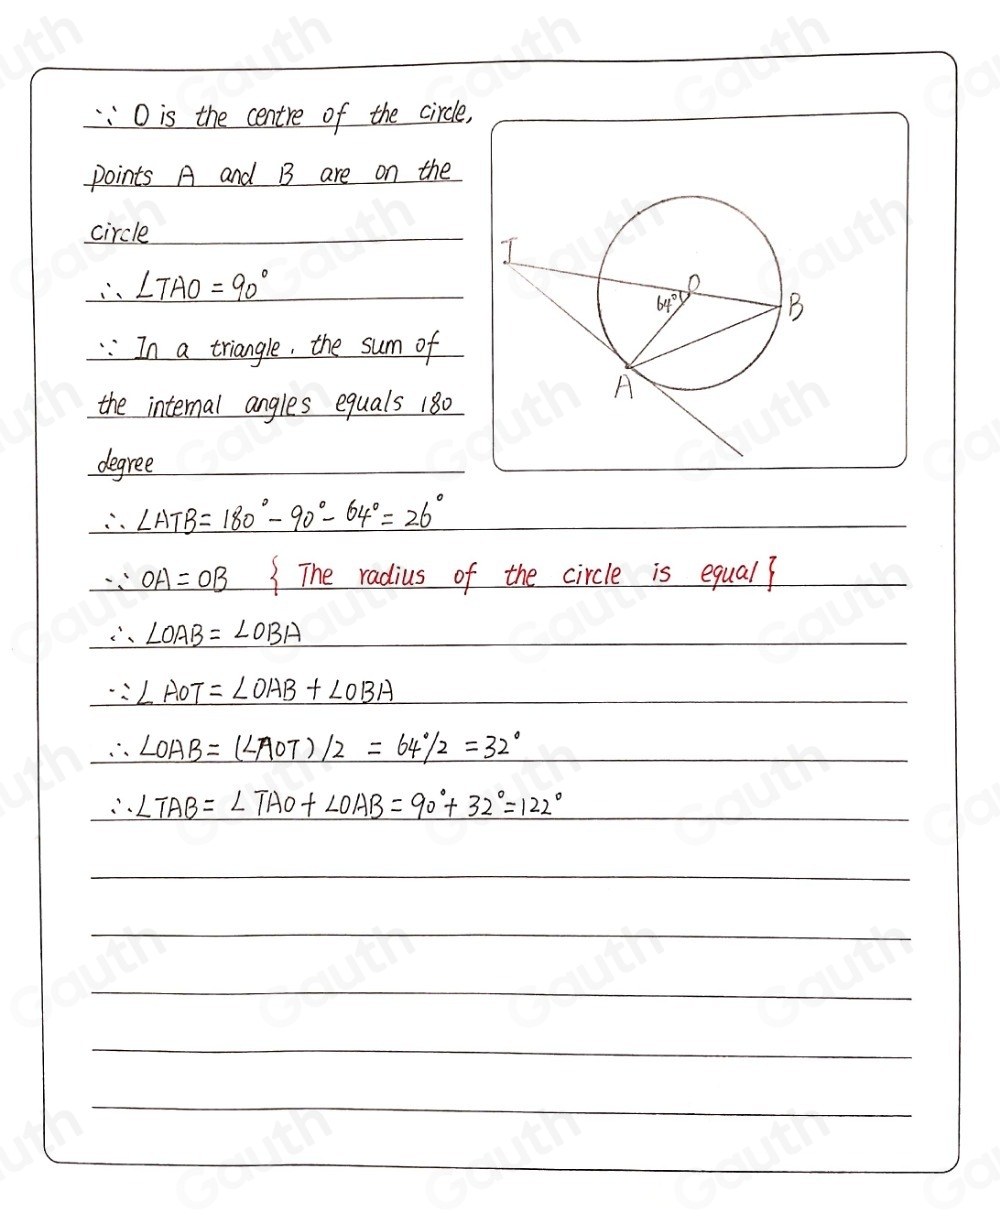 ∵ O is the centre of the circle,
points A and B are on the
circle
∴ ∠TAO = 90°
∵ In a triangle, the sum of
the internal angles equals 180
degree
∴ ∠ATB = 180° - 90° - 64° = 26°
∵ OA = OB { The radius of the circle is equal }
∴ ∠OAB = ∠OBA
∵ ∠AOT = ∠OAB + ∠OBA
∴ ∠OAB = (∠AOT)/2 = 64°/2 = 32°
∴ ∠TAB = ∠TAO + ∠OAB = 90° + 32° = 122°
T
O
64°
B
A
Gauth